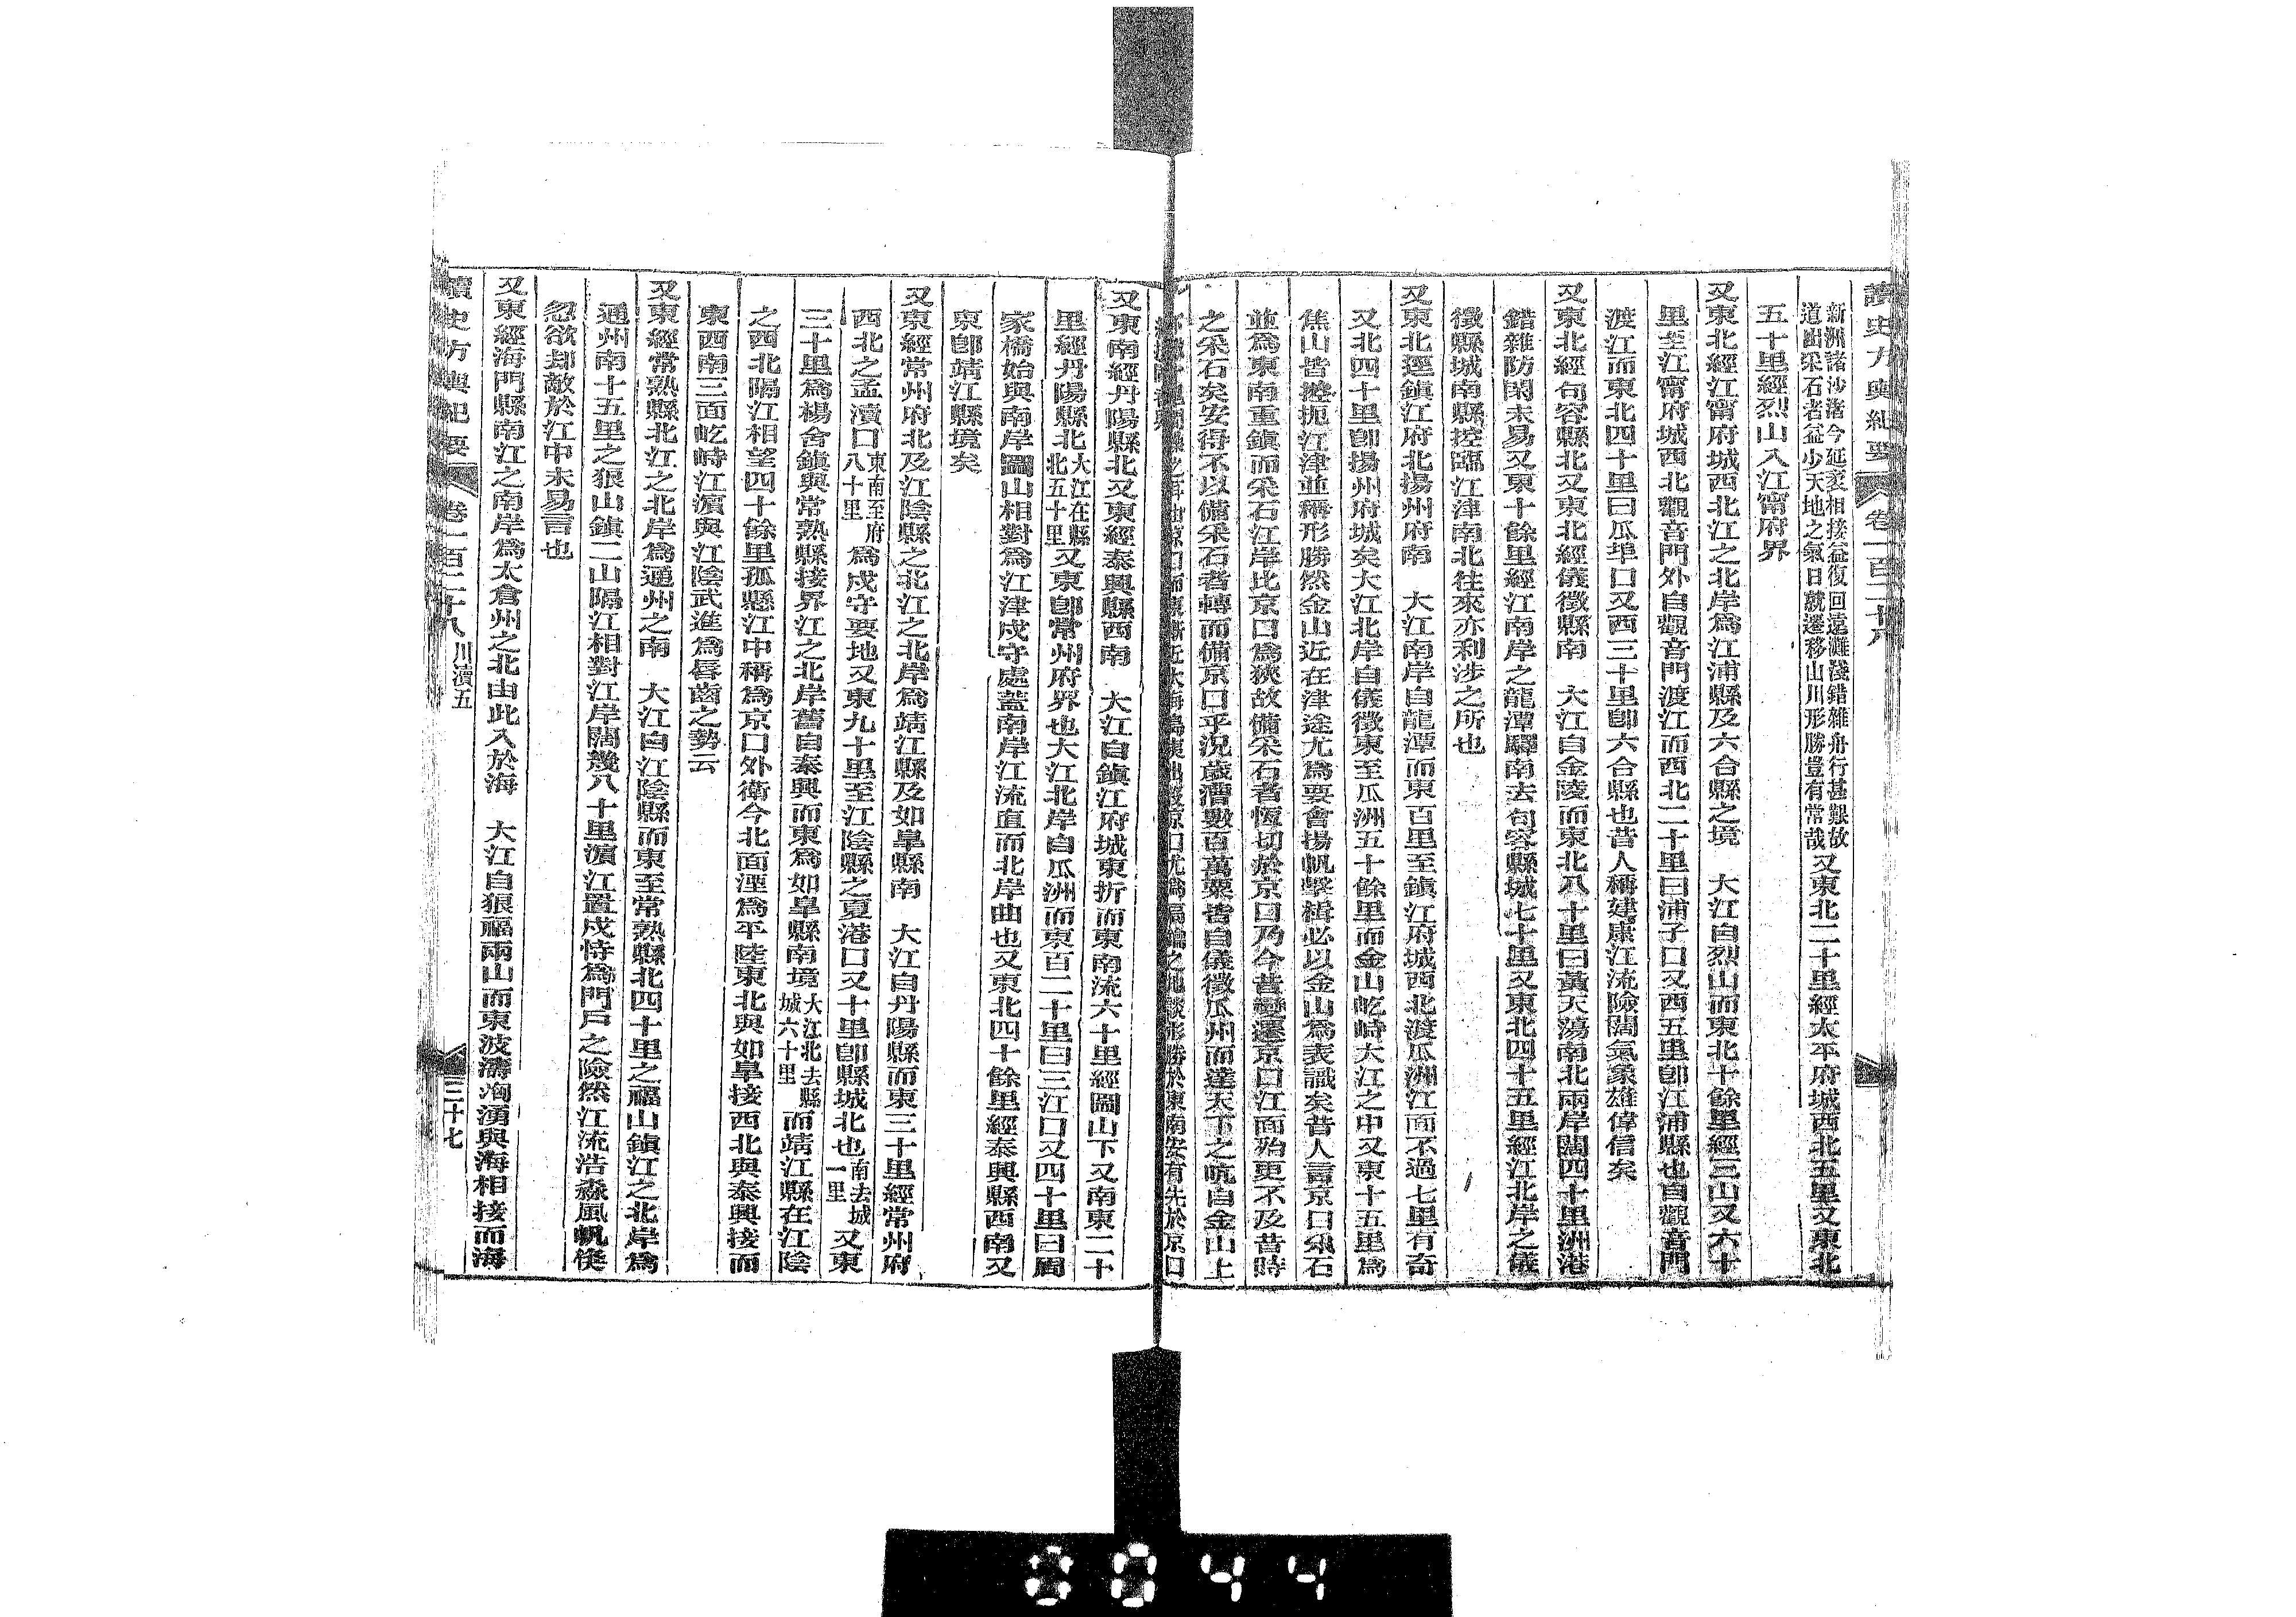 讀史方輿紀要 卷一百二十八
新洲諸沙渚今延袤相接益復回遠灘淺錯雜舟行甚艱故
道出采石者益少天地之氣日就遷移山川形勝豈有常哉
又東北二十里經太平府城西北五里又東北
五十里經烈山入江甯府界
又東北經江甯府城西北江之北岸爲江浦縣及六合縣之境 大江自烈山而東北十餘里經三山又六十
里至江甯府城西北觀音門外自觀音門渡江而西北二十里曰浦子口又西五里卽江浦縣也自觀音門
渡江而東北四十里曰瓜埠口又西三十里卽六合縣也昔人稱建康江流險闊氣象雄偉信矣
又東北經句容縣北又東北經儀徵縣南 大江自金陵而東北八十里曰黃天蕩南北兩岸闊四十里洲港
錯雜防閑未易又東十餘里經江南岸之龍潭驛南去句容縣城七十里又東北四十五里經江北岸之儀
徵縣城南縣控臨江津南北往來亦利涉之所也
又東北逕鎭江府北揚州府南 大江南岸自龍潭而東百里至鎭江府城西北渡瓜洲江面不過七里有奇
又北四十里卽揚州府城矣大江北岸自儀徵東至瓜洲五十餘里而金山屹峙大江之中又東十五里爲
焦山皆控扼江津並稱形勝然金山近在津途尤爲要會揚帆擊楫必以金山爲表識矣昔人言京口采石
並爲東南重鎭而采石江岸比京口爲狹故備采石者恆切於京口乃今昔變遷京口江面殆更不及昔時
之采石矣安得不以備采石者轉而備京口乎況歲漕數百萬粟皆自儀徵瓜州而達天下之吭自金山上
之地談形勝於東南安有先於京口
又東南經丹陽縣北又東經泰興縣西南 大江自鎭江府城東折而東南流六十里經圌山下又南東二十
里經丹陽縣北
大江在縣
北五十里
又東卽常州府界也大江北岸自瓜洲而東百二十里曰三江口又四十里曰周
家橋始與南岸圌山相對爲江津戍守處蓋南岸江流直而北岸曲也又東北四十餘里經泰興縣西南又
東卽靖江縣境矣
又東經常州府北及江陰縣之北江之北岸爲靖江縣及如皐縣南 大江自丹陽縣而東三十里經常州府
西北之孟瀆口
東南至府
八十里
爲戍守要地又東九十里至江陰縣之夏港口又十里卽縣城北也
南去城
一里
又東
三十里爲楊舍鎭與常熟縣接界江之北岸舊自泰興而東爲如皐縣南境
大江北去縣
城六十里
而靖江縣在江陰
之西北隔江相望四十餘里孤懸江中稱爲京口外衛今北面湮爲平陸東北與如皐接西北與泰興接而
東西南三面屹峙江濱與江陰武進爲脣齒之勢云
又東經常熟縣北江之北岸爲通州之南 大江自江陰縣而東至常熟縣北四十里之福山鎭江之北岸爲
通州南十五里之狼山鎭二山隔江相對江岸闊幾八十里濱江置戍恃爲門戶之險然江流浩淼風帆倏
忽欲却敵於江中未易言也
又東經海門縣南江之南岸爲太倉州之北由此入於海 大江自狼福兩山而東波濤洶湧與海相接而海
讀史方輿紀要 卷一百二十八 川瀆五 三十七
0044